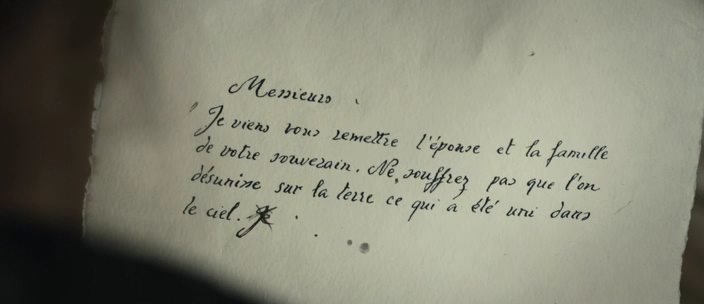 Messieurs,
Je viens vous remettre l'épouse et la famille
de votre souverain. Ne souffrez pas que l'on
désunisse sur la terre ce qui a été uni dans
le ciel. Je